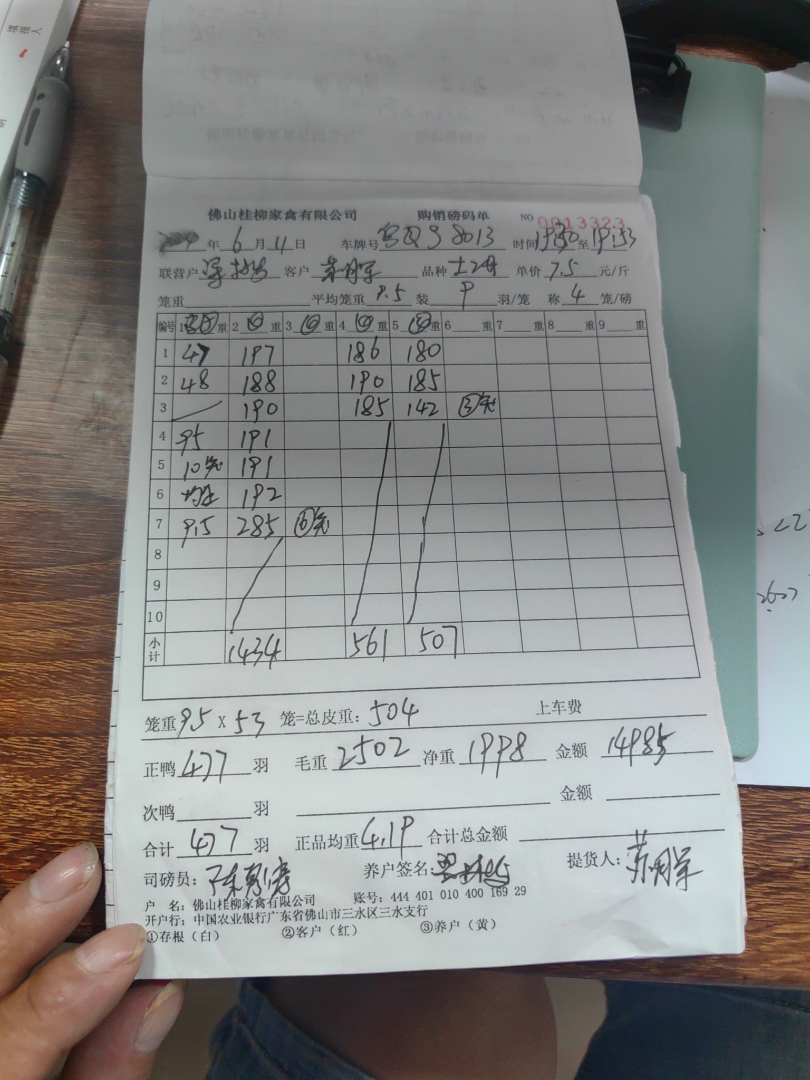 佛山桂柳家禽有限公司 购销磅码单 NO 0013323
年 6 月 4 日 车牌号 8013 时间 19:30 至 19:53
联营户 客户 品种 土2 单价 7.5 元/斤
笼重 平均笼重 9.5 装 9 羽/笼 称 4 笼/磅
编号 1 空笼 重 2 ④ 重 3 ④ 重 4 ④ 重 5 ④ 重 6 重 7 重 8 重 9 重
1 47 197 186 180
2 48 188 190 185
3 190 185 142 ③笼
4 95 191
5 10笼 191
6 均重 192
7 9.5 285 ⑥笼
8
9
10
小计 1434 561 507
笼重 9.5 X 53 笼=总皮重: 504 上车费
正鸭 477 羽 毛重 2502 净重 1998 金额 14985
次鸭 羽 金额
合计 477 羽 正品均重 4.19 合计总金额
司磅员: 养户签名: 提货人:
户 名: 佛山桂柳家禽有限公司 账号: 444 401 010 400 169 29
开户行: 中国农业银行广东省佛山市三水区三水支行
①存根（白） ②客户（红） ③养户（黄）